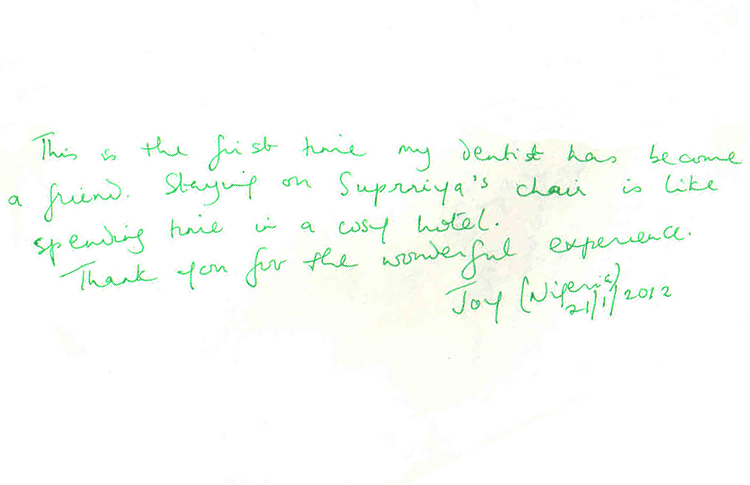 This is the first time my dentist has become
a friend. Staying on Suprriya's chair is like
spending time in a cosy hotel.
Thank you for the wonderful experience.
Joy (Nigeria)
21/1/2012